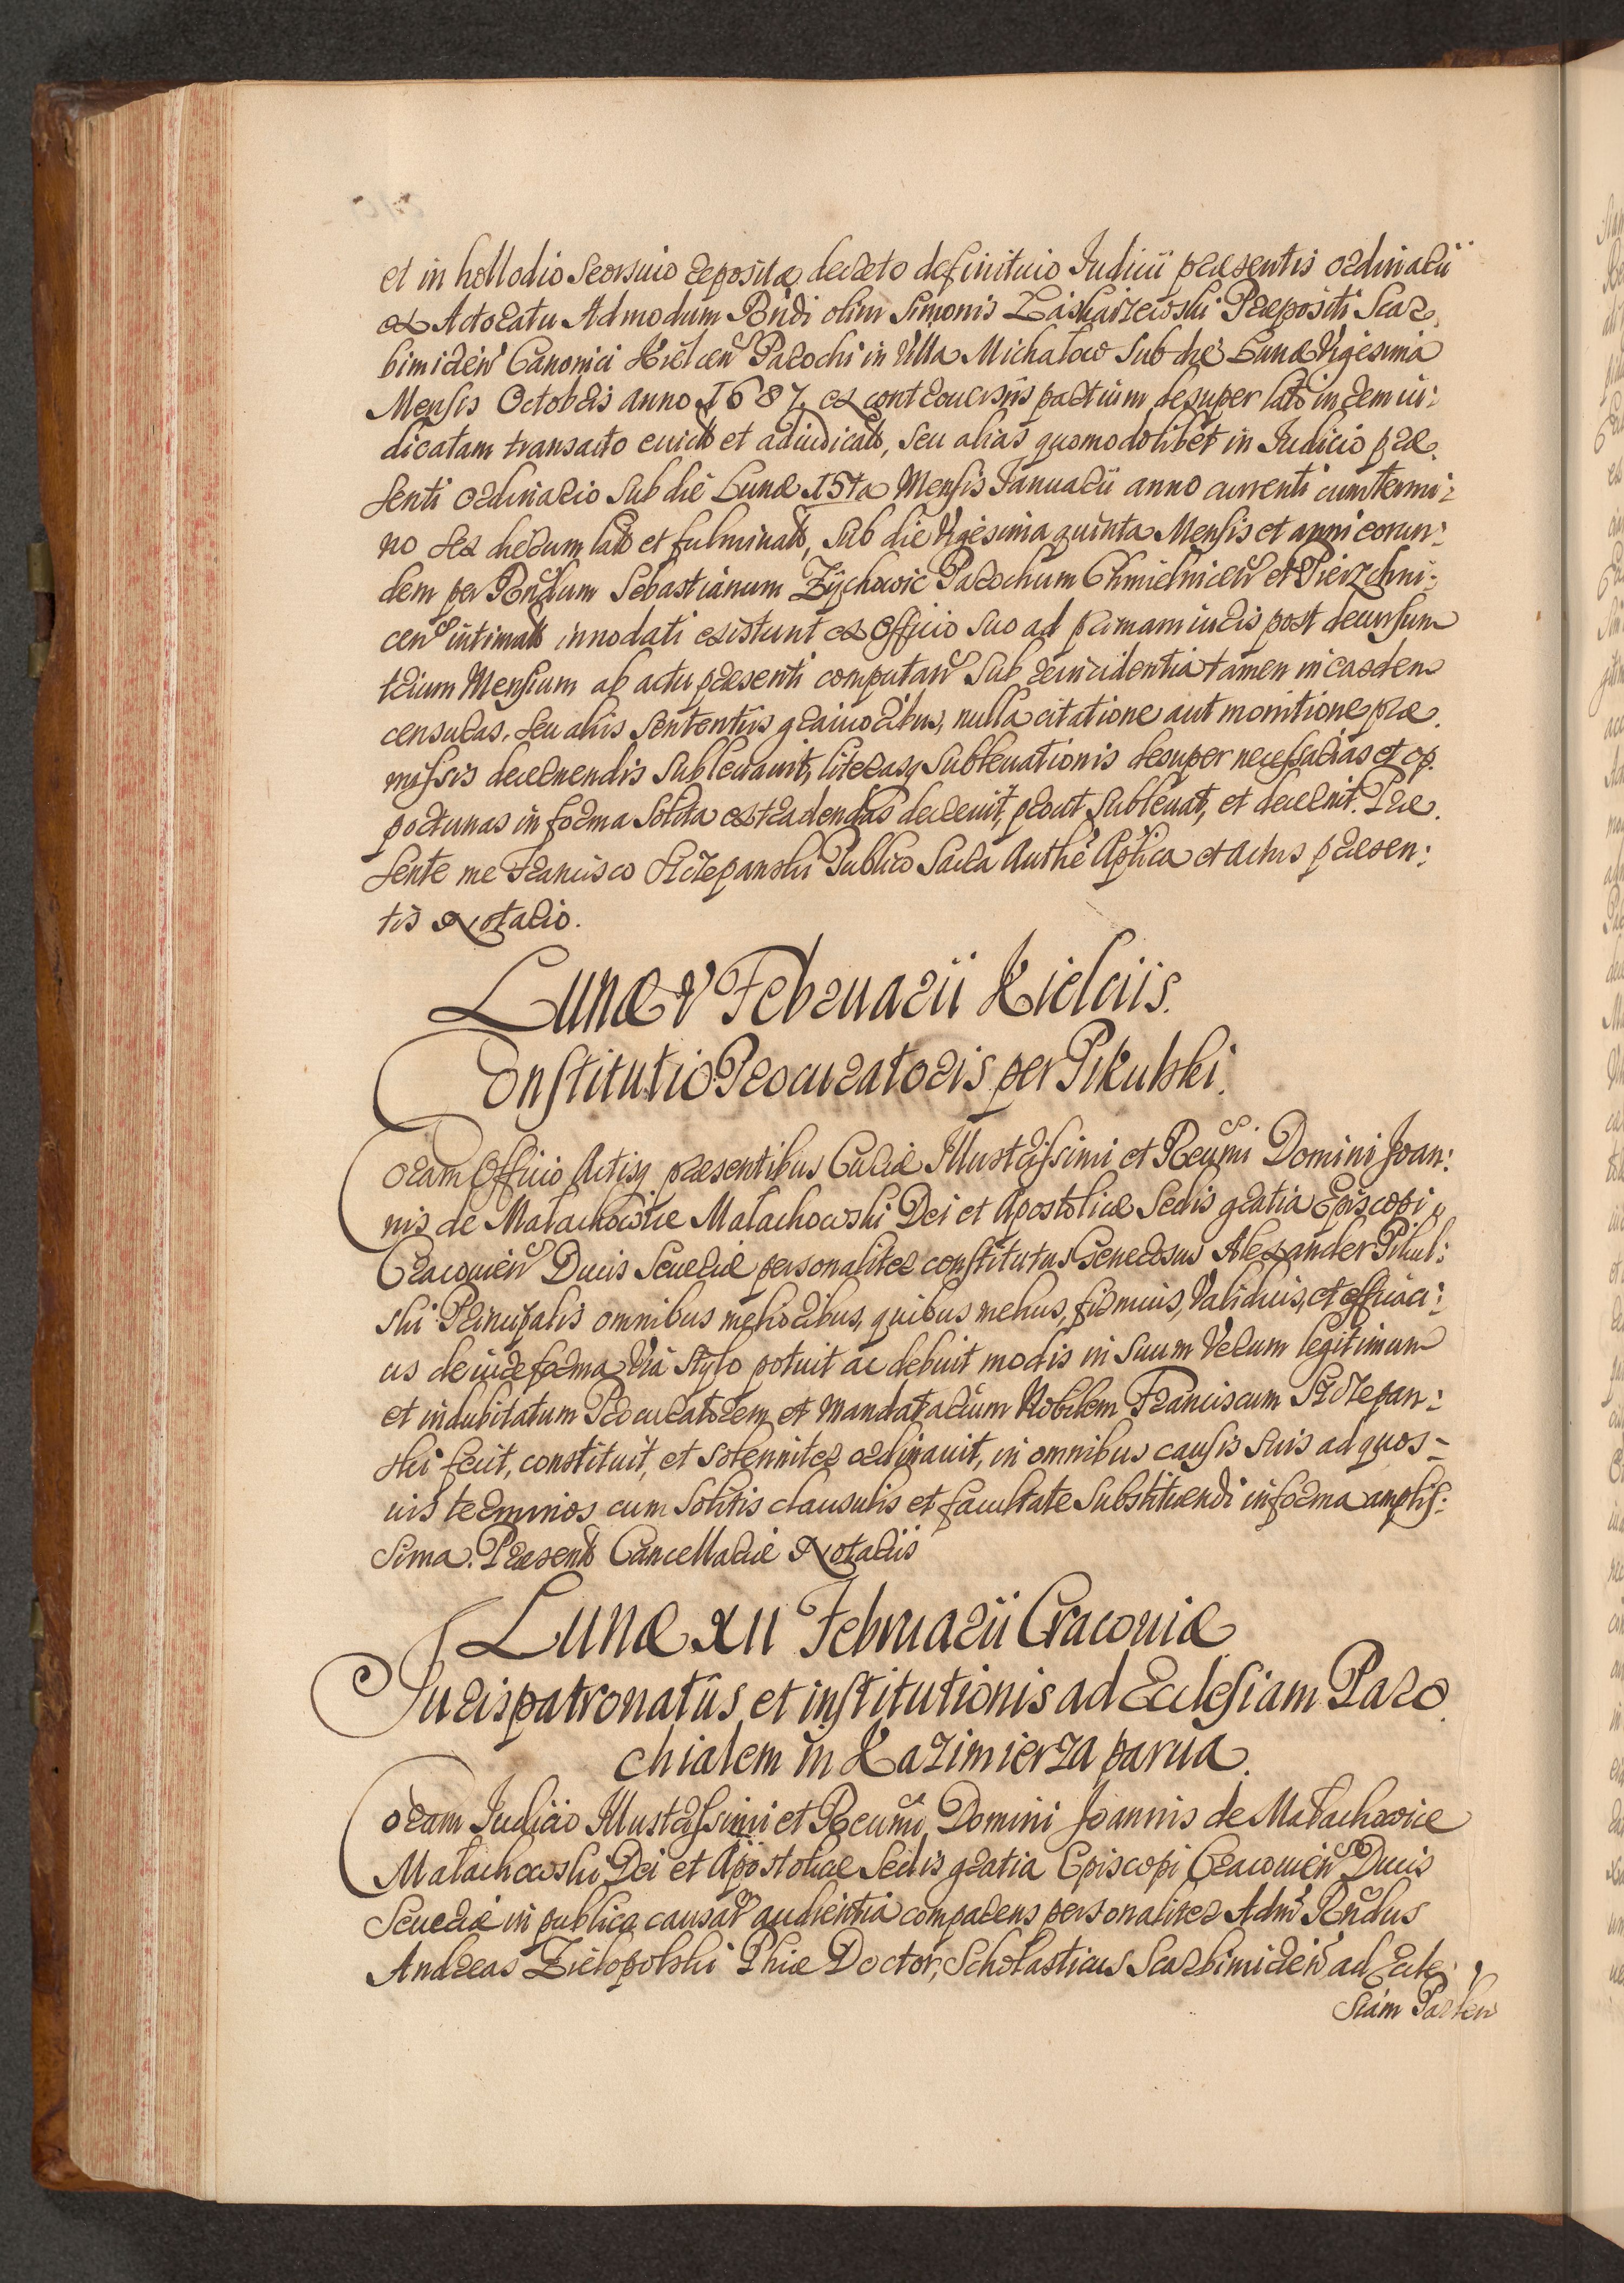 et in hollodio seorsuio repositæ, decreto definitiuio Iudicii præsentis ordinarii
ex Actoratu Admodum Rñdi olim Simonis Laskarzewski Præpositi Scar,
bimirień Canonici Kielceń Parochi in Villa Michałow sub die Lunæ Vigesima
Mensis Octobris anno 1687. ex controuersiis partium desuper lato in rem iu:
dicatam transacto euicto et adiudicato, seu alias quomodolibet in Iudicio præ.
senti ordinario sub die Lunæ 15ta Mensis Ianuarii anno currenti cum termi:
no sex dierum lato et fulminato, sub die Vigesima quinta Mensis et anni eorun:
dem per Rñdum Sebastianum Zychowic Parochum Chmielniceń et Pierzchni:
ceń intimato innodati existunt ex Officio suo ad primam iuris post decursum
trium Mensium ab actu præsenti computań sub reincidentia tamen in easdem
censuras, seu aliis sententiis grauioribus, nulla citatione aut monitione præ.
missis decernendis subleuauit, literasq subleuationis desuper necessarias et op.
portunas in forma solita extradendas decreuit, prout subleuat, et decernit. Præ.
sente me Francisco Szczepanski Publico Sacra Authe Aplica et actus præsen:
tis Notario.
Lunæ V Februarii Kielciis.
Constitutio Procuratoris per Pikulski.
Coram Officio Actisq præsentibus Curiæ Illustrissimi et Reumi Domini Joan:
nis de Małachowice Małachowski Dei et Apostolicæ Sedis gratia Episcopi
Cracouień Ducis Seueriæ personaliter constitutus Generosus Alexander Pikul:
ski Principalis omnibus melioribus, quibus melius, firmius, validius, et efficaci:
us de iure forma via stylo potuit ac debuit modis in suum verum legitimum
et indubitatum Procuratorem et Mandatarium Nobilem Franciscum Szczepan:
ski fecit, constituit, et solenniter ordinauit, in omnibus causis suis ad quos-
uis terminos cum solitis clausulis et facultate substituendi in forma amplis:
sima. Præsento Cancellariæ Notariis
Lunæ XII Februarii Cracouiæ
Iuris patronatus et institutionis ad Ecclesiam Paro
chialem in Kazimierza parua.
Coram Iudicio Illustrissimi et Reumi Domini Joannis de Małachowice
Małachowski Dei et Apostolicæ Sedis gratia Episcopi Cracouień Ducis
Seueriæ in publica causar audientia comparens personaliter Adm Rñdus
Andreas Zielopolski Phiæ Doctor, Scholasticus Scarbimirień ad Eccle:
siam Parlem